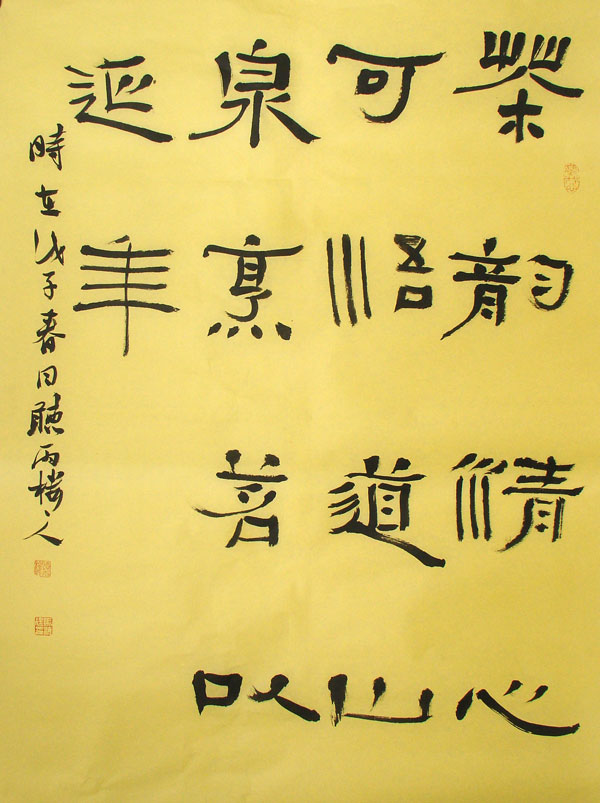 茶韵清心
可悟道山
泉烹茗以
延年
時在戊子春日聽雨樓人